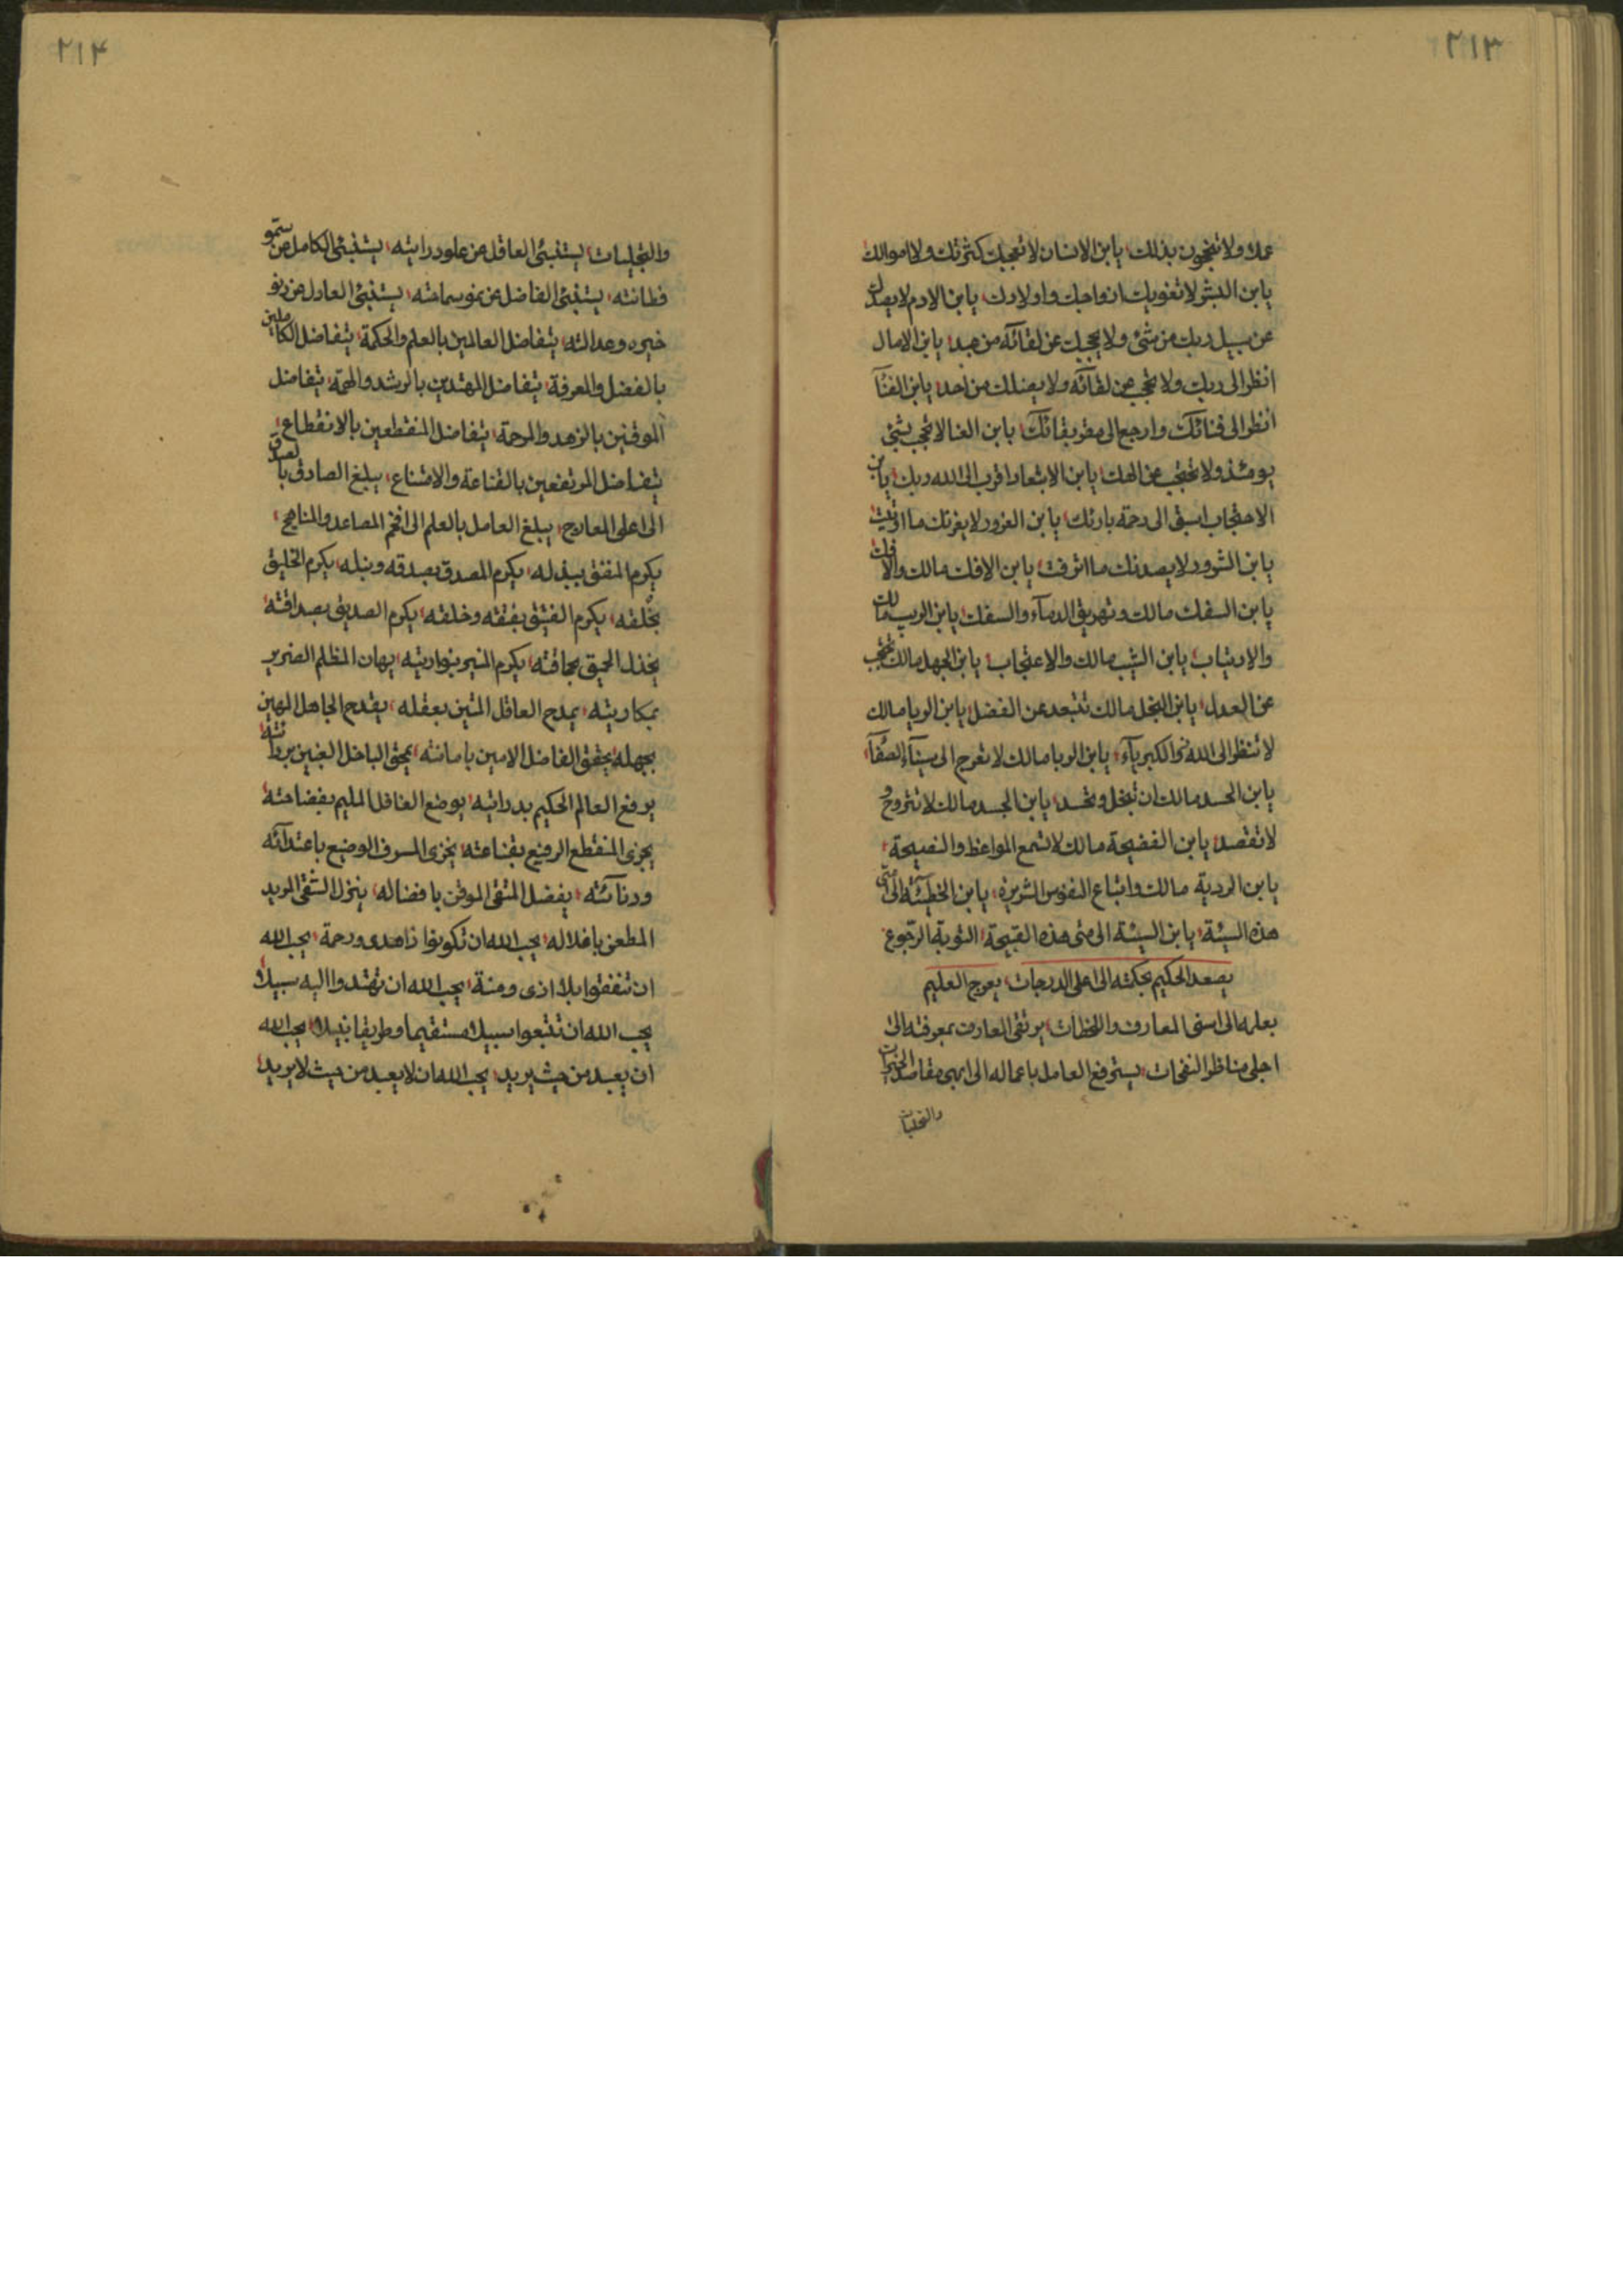 ٢١٣
عملا ولا تنجون بذلك يابن الانسان لا تعجبك كثرتك ولا اموالك
يابن البشر لا تغويك ازواجك واولادك يابن الادم لا يصدك
عن سبيل ربك من شئ ولا يحجبك عن لقائه من عبد يابن الامال
انظر الى ربك ولا تحجب عن لقائه ولا يضلك من احد يابن الفنآ
انظر الى فنائك وارجع الى مقر بقائك يابن الغنا لا تحجب بشئ
يومئذ ولا تحتجب عن الهك يابن الابتعاد اقرب الى الله ربك يابن
الاحتجاب اسبق الى رحمة بارئك يابن الغرور لا يغرنك ما اوتيت
يابن الشرور لا يصدنك ما اترفت يابن الافك مالك والافك
يابن السفك مالك وتهريق الدمآء والسفك يابن الريب مالك
والارتياب يابن الشيب مالك والاعتجاب يابن الجهل مالك تحتجب
عن العدل يابن البخل مالك تبتعد عن الفضل يابن الريا مالك
لا تنظر الى الله ذو الكبريآء يابن الوبا مالك لا تعرج الى سينآء الصفآء
يابن الحسد مالك ان تبخل وتحسد يابن الجسد مالك لا تتروح و
لا تقصد يابن الفضيحة مالك لا تسمع المواعظ والنصيحة
يابن الردية مالك واتباع النفوس الشريرة يابن الخطيئة الى متى
هذه السيئة يابن السيئة الى متى هذه القبيحة التوبة الرجوع
يصعد الحكيم بحكمته الى اعلى الدرجات يعرج العليم
بعلمه الى اسنى المعارف واللحظات يرتقى العارف بمعرفته الى
اجلى مناظر النفحات يسترفع العامل باعماله الى ابهى مقاصد
والتجليات
٢١٤
والتجليات يستنبئ العاقل عن علو درايته يستنبئ الكامل عن سمو
فطانته يستنبئ الفاضل عن نمو سماحته يستنبئ العادل عن
خبره وعدالته يتفاضل العالمين بالعلم والحكمة يتفاضل الكاملين
بالفضل والمعرفة يتفاضل المهتدين بالرشد والهمة يتفاضل
الموقنين بالزهد والرحمة يتفاضل المنقطعين بالانقطاع
يتفاضل المرتفعين بالقناعة والامتناع يبلغ الصادق بالصدق
الى اعلى المعارج يبلغ العامل بالعلم الى افخم المصاعد والمناهج
يكرم المنفق ببذله يكرم المصدق بصدقه ونبله يكرم الخليق
بخلقه يكرم الفتيق بفتقه وخلقه يكرم الصديق بصداقته
يخذل الحميق بحماقته يكرم المنير بنواريته يهان المظلم الضرير
بمكاريته يمدح العاقل المتين بعقله يقدح الجاهل المهين
بجهله يحقق الفاضل الامين بامانته يمحق الباخل الغبين
يرفع العالم الحكيم بدرايته يوضع الغافل المليم بفضاحته
يجزى المنقطع الرفيع بقناعته يخزى المسرف الوضيع باعتدآئه
ودنآئته يفضل المتقى الموقن بافضاله ينزل الشقى المريد
المطعن باغلاله يحب الله ان تكونوا ذا هدى ورحمة يحب الله
ان تنفقوا بلا اذى ومنة يحب الله ان تهتدوا اليه سبيلا
يحب الله ان تتبعوا سبيلا مستقيما وطريقا نبيلا يحب الله
ان يعبد من حيث يريد يحب الله ان لا يعبد من حيث لا يريد